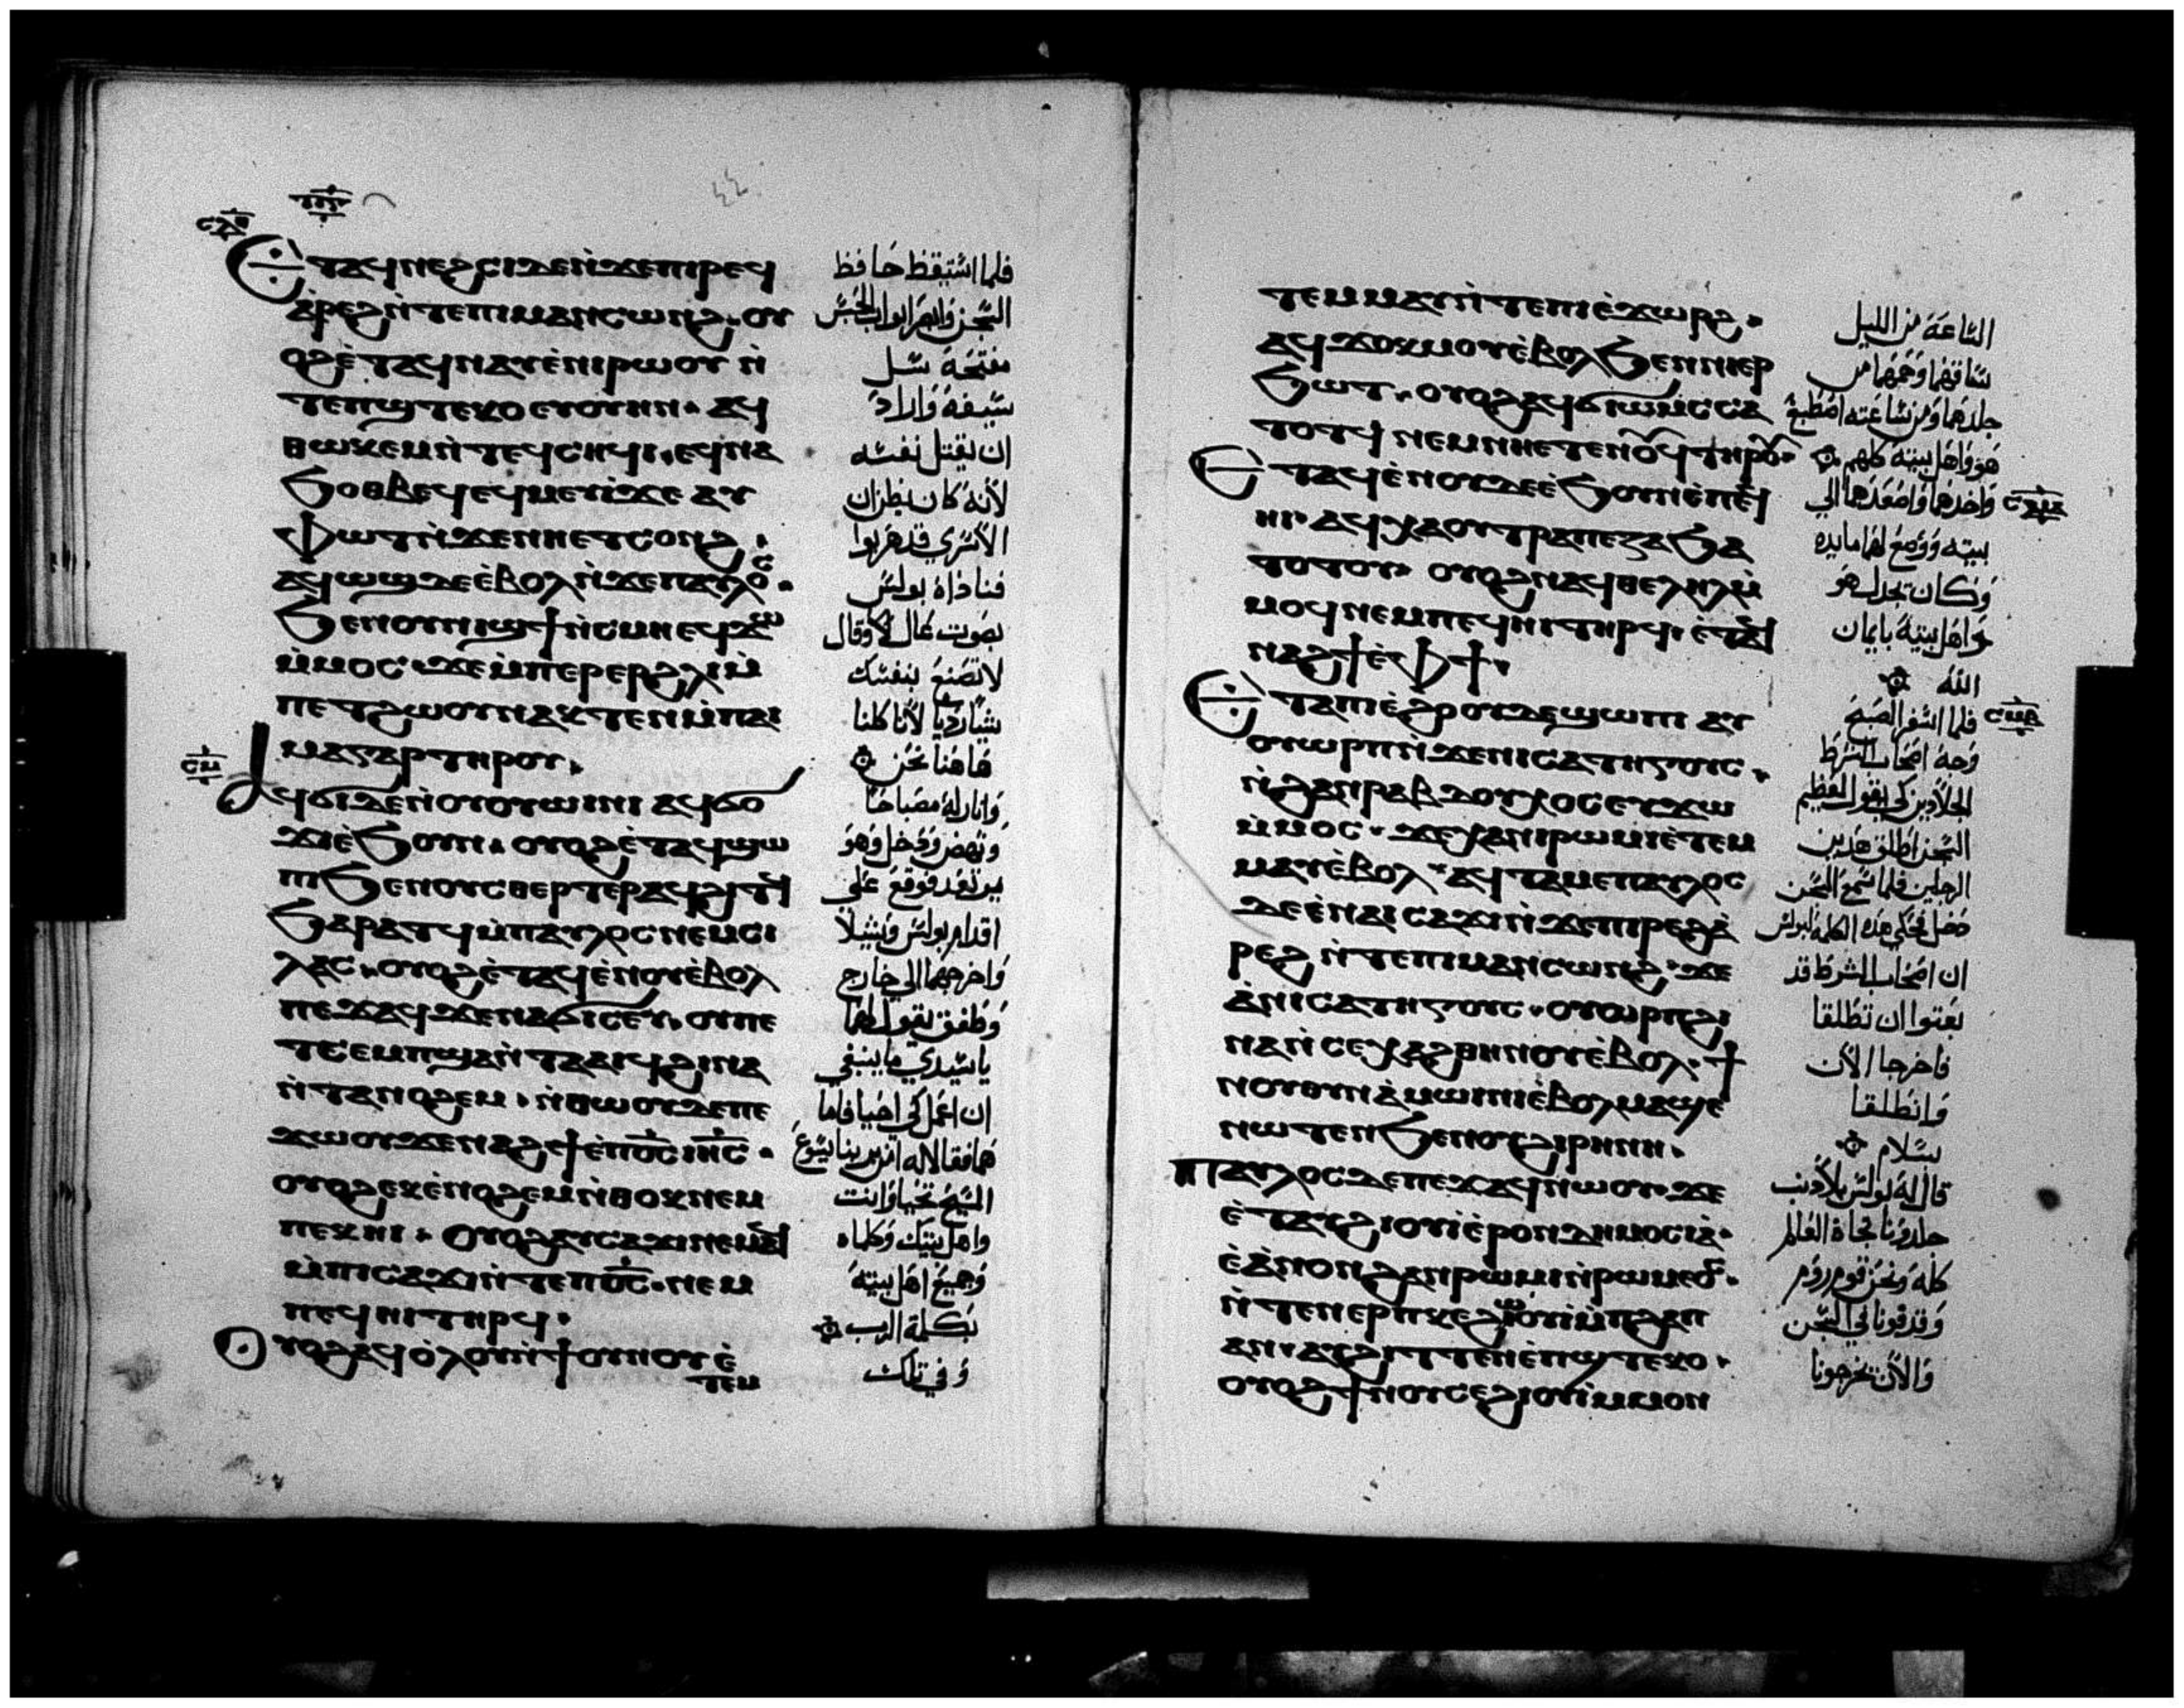 ⲉⲧⲁϥⲛⲉϩⲥⲓ ⲇⲉ ⲛ̇ϫⲉⲡⲓⲣⲉϥ
ⲁ̇ⲣⲉϩ ⲛ̇ⲧⲉⲡⲓⲙⲁⲛⲥⲱⲛϩ· ⲟⲩ
ⲟϩ ⲉ̇ⲧⲁϥⲛⲁⲩ ⲉ̇ⲛⲓⲣⲱⲟⲩ ⲛ̇
ⲧⲉⲡϣⲧⲉⲕⲟ ⲉⲩⲟⲩⲏⲛ· ⲁϥ
ⲑⲱⲕⲉⲙ ⲛ̇ⲧⲉϥⲥⲏϥⲓ· ⲉϥⲛⲁ
ϧⲟⲑⲃⲉϥ ⲉϥⲙⲉⲩⲓ̇ ϫⲉ ⲁⲩ
ⲫⲱⲧ ⲛ̇ϫⲉⲛⲏⲉⲧⲥⲟⲛϩ·
ⲁϥⲱϣ ⲇⲉ ⲉ̇ⲃⲟⲗ ⲛ̇ϫⲉⲡⲁⲩⲗⲟⲥ·
ϧⲉⲛⲟⲩⲛⲓϣϯ ⲛ̇ⲥⲙⲏ ⲉϥϫⲱ
ⲙ̇ⲙⲟⲥ· ϫⲉ ⲙ̇ⲡⲉⲣⲉⲣϩⲗⲓ ⲙ̇
ⲡⲉⲧϩⲱⲟⲩ ⲛⲁⲕ ⲧⲉⲛⲙ̇ⲡⲁⲓ
ⲙⲁ ⲅⲁⲣ ⲧⲏⲣⲟⲩ·
ⲁϥϭⲓ ⲇⲉ ⲛ̇ⲟⲩⲟⲩⲱⲓⲛⲓ ⲁϥϭⲟ
ϫⲓ ⲉ̇ϧⲟⲩⲛ· ⲟⲩⲟϩ ⲉ̇ⲧⲁϥϣⲱ
ⲡⲓ ϧⲉⲛⲟⲩⲥⲑⲉⲣⲧⲉⲣ ⲁϥϩⲓⲧϥ
ϧⲁⲣⲁⲧϥ ⲙ̇ⲡⲁⲩⲗⲟⲥ ⲛⲉⲙⲥⲓ
ⲗⲁⲥ· ⲟⲩⲟϩ ⲉ̇ⲧⲁϥⲉ̇ⲛⲟⲩ ⲉ̇ⲃⲟⲗ
ⲡⲉϫⲁϥ ϫⲉ ⲛⲁϭⲓⲥⲉⲩ· ⲟⲩ ⲡⲉ
ⲧⲥ̇ⲉⲙⲡϣⲁ ⲛ̇ⲧⲁⲁⲓϥ ϩⲓⲛⲁ
ⲛ̇ⲧⲁⲛⲟϩⲉⲙ· ⲛ̇ⲑⲱⲟⲩ ⲇⲉ ⲡⲉ
ϫⲱⲟⲩ ϫⲉ ⲛⲁϩϯ ⲉ̇ⲡⲟ̅ⲥ̅ ⲓⲏ̅ⲥ̅·
ⲟⲩⲟϩ ⲉⲕⲉ̇ⲛⲟϩⲉⲙ ⲛ̇ⲑⲟⲕ ⲛⲉⲙ
ⲡⲉⲕⲏⲓ· ⲟⲩⲟϩ ⲁⲩⲥⲁϫⲓ ⲛⲉⲙⲁϥ
ⲙ̇ⲡⲓⲥⲁϫⲓ ⲛ̇ⲧⲉⲡⲟ̅ⲥ̅· ⲛⲉⲙ
ⲡⲉϥⲏⲓ ⲧⲏⲣϥ·
ⲟⲩⲟϩ ⲁϥⲟ̇ⲗⲟⲩ ⲛ̇ϯⲟⲩⲛⲟⲩ ⲉ̇
ⲧⲉⲙ
فلما استيقظ حافظ
السجن وابصر ابواب الحبس
مفتحة سل
سيفه واراد
ان يقتل نفسه
لانه كان يظن ان
الاسرى قد هربوا
فناداه بولس
بصوت عال وقال
لا تصنع بنفسك
شيا رديا لاننا كلنا
هاهنا نحن
وانار له مصباحا
ونهض ودخل وهو
يرتعد فوقع على
اقدام بولس وشيلا
واخرجهما الى خارج
وطفق يقول لهما
يا سيدي ما ينبغي
ان اعمل كي احيا فاما
هما فقالا له امن بربنا يسوع
المسيح تحيا وانت
واهل بيتك وكلماه
وجميع اهل بيته
بكلمة الرب
وفي تلك
ⲧⲉⲙⲙⲁⲩ ⲛ̇ⲧⲉⲡⲓⲉ̇ϫⲱⲣϩ·
ⲁϥϫⲟⲕⲙⲟⲩ ⲉ̇ⲃⲟⲗ ϧⲉⲛⲛⲓⲉⲣ
ϧⲱⲧ· ⲟⲩⲟϩ ⲁϥϭⲓⲱⲙⲥ ⲥⲁ
ⲧⲟⲧϥ ⲛⲉⲙ ⲛⲏⲉⲧⲉⲛⲟⲩϥ ⲧⲏⲣⲟⲩ·
ⲉⲧⲁϥⲉ̇ⲛⲟⲩ ⲇⲉ ⲉ̇ϧⲟⲩⲛ ⲉ̇ⲡⲉϥ
ⲏⲓ· ⲁϥⲭⲁ ⲟⲩⲧⲣⲁⲡⲉⲍⲁ ϧⲁ
ⲧⲟⲧⲟⲩ· ⲟⲩⲟϩ ⲛⲁϥⲑⲉⲗⲏⲗ ⲙ̇
ⲙⲟϥ ⲛⲉⲙ ⲡⲉϥⲏⲓ ⲧⲏⲣϥ· ⲉ̇ⲧⲁϥ
ⲛⲁϩϯ ⲉ̇ⲫϯ·
ⲉⲧⲁⲡⲓⲉ̇ϩⲟⲟⲩ ⲇⲉ ϣⲱⲡⲓ ⲁⲩ
ⲟⲩⲱⲣⲡ ⲛ̇ϫⲉⲛⲓⲥⲁⲧⲏⲅⲟⲩⲥ·
ⲛ̇ϩⲁⲛⲣⲁⲃⲇⲟⲩⲭⲟⲥ ⲉⲩϫⲱ
ⲙ̇ⲙⲟⲥ· ϫⲉ ⲭⲁⲛⲓⲣⲱⲙⲓ ⲉ̇ⲧⲉⲙ
ⲙⲁⲩ ⲉ̇ⲃⲟⲗ· ⲁϥⲧⲁⲙⲉⲡⲁⲩⲗⲟⲥ
ⲇⲉ ⲉ̇ⲛⲁⲓⲥⲁϫⲓ ⲛ̇ϫⲉⲡⲓⲣⲉϥⲁ̇
ⲣⲉϩ ⲛ̇ⲧⲉⲡⲓⲙⲁⲛⲥⲱⲛϩ· ϫⲉ
ⲁ̇ⲛⲓⲥⲁⲧⲏⲅⲟⲩⲥ· ⲟⲩⲱⲣⲡ ϩⲓ
ⲛⲁ ⲛ̇ⲥⲉⲭⲁⲑⲏⲛⲟⲩ ⲉ̇ⲃⲟⲗ· ϯ
ⲛⲟⲩ ⲟⲩⲛ ⲁ̇ⲙⲱⲓⲛⲓ ⲉ̇ⲃⲟⲗ ⲙⲁϣⲉ
ⲛⲱⲧⲉⲛ ϧⲉⲛⲟⲩϩⲓⲣⲏⲛⲏ·
ⲡⲁⲩⲗⲟⲥ ⲇⲉ ⲡⲉϫⲁϥ ⲛⲱⲟⲩ· ϫⲉ
ⲉ̇ⲧⲁⲩϩⲓⲟⲩⲓ̇ ⲉ̇ⲣⲟⲛ ⲇⲏⲙⲟⲥⲓⲁ̇·
ⲉ̇ⲁ̇ⲛⲟⲛ ϩⲁⲛⲣⲱⲙⲓ ⲛ̇ⲣⲱⲙⲉⲟⲥ·
ⲛ̇ⲧⲉⲛⲉⲣⲡⲕⲉϩⲓⲱⲟⲩⲓ̇ ⲙ̇ⲡϩⲁⲡ
ⲁⲛ· ⲁⲩϩⲓⲧⲧⲉⲛ ⲉ̇ⲡϣⲧⲉⲕⲟ·
ⲟⲩⲟϩ ϯⲛⲟⲩ ⲥⲉϩⲓⲟⲩⲓ̇ ⲙⲙⲟⲛ
الساعة من الليل
جلدهما ومن ساعته اصطبغ
هو واهل بيته كلهم
واخدهما واصعدهما الى
بيته ووضع لهما مايده
وكان يجدل هو
واهل بيته بايمان
الله
فلما اسفر الصبح
وجه اصحاب الشرط
السجن اطلق هذين
الرجلين فلما سمع
ان اصحاب الشرط قد
بعتوا ان تطلقا
فاخرجا الان
وانطلقا
بسلام
قال له بولس بلا ذنب
جلدونا تجاه العالم
كله ونحن قوم روم
وقدفونا في السجن
والان تخرجونا